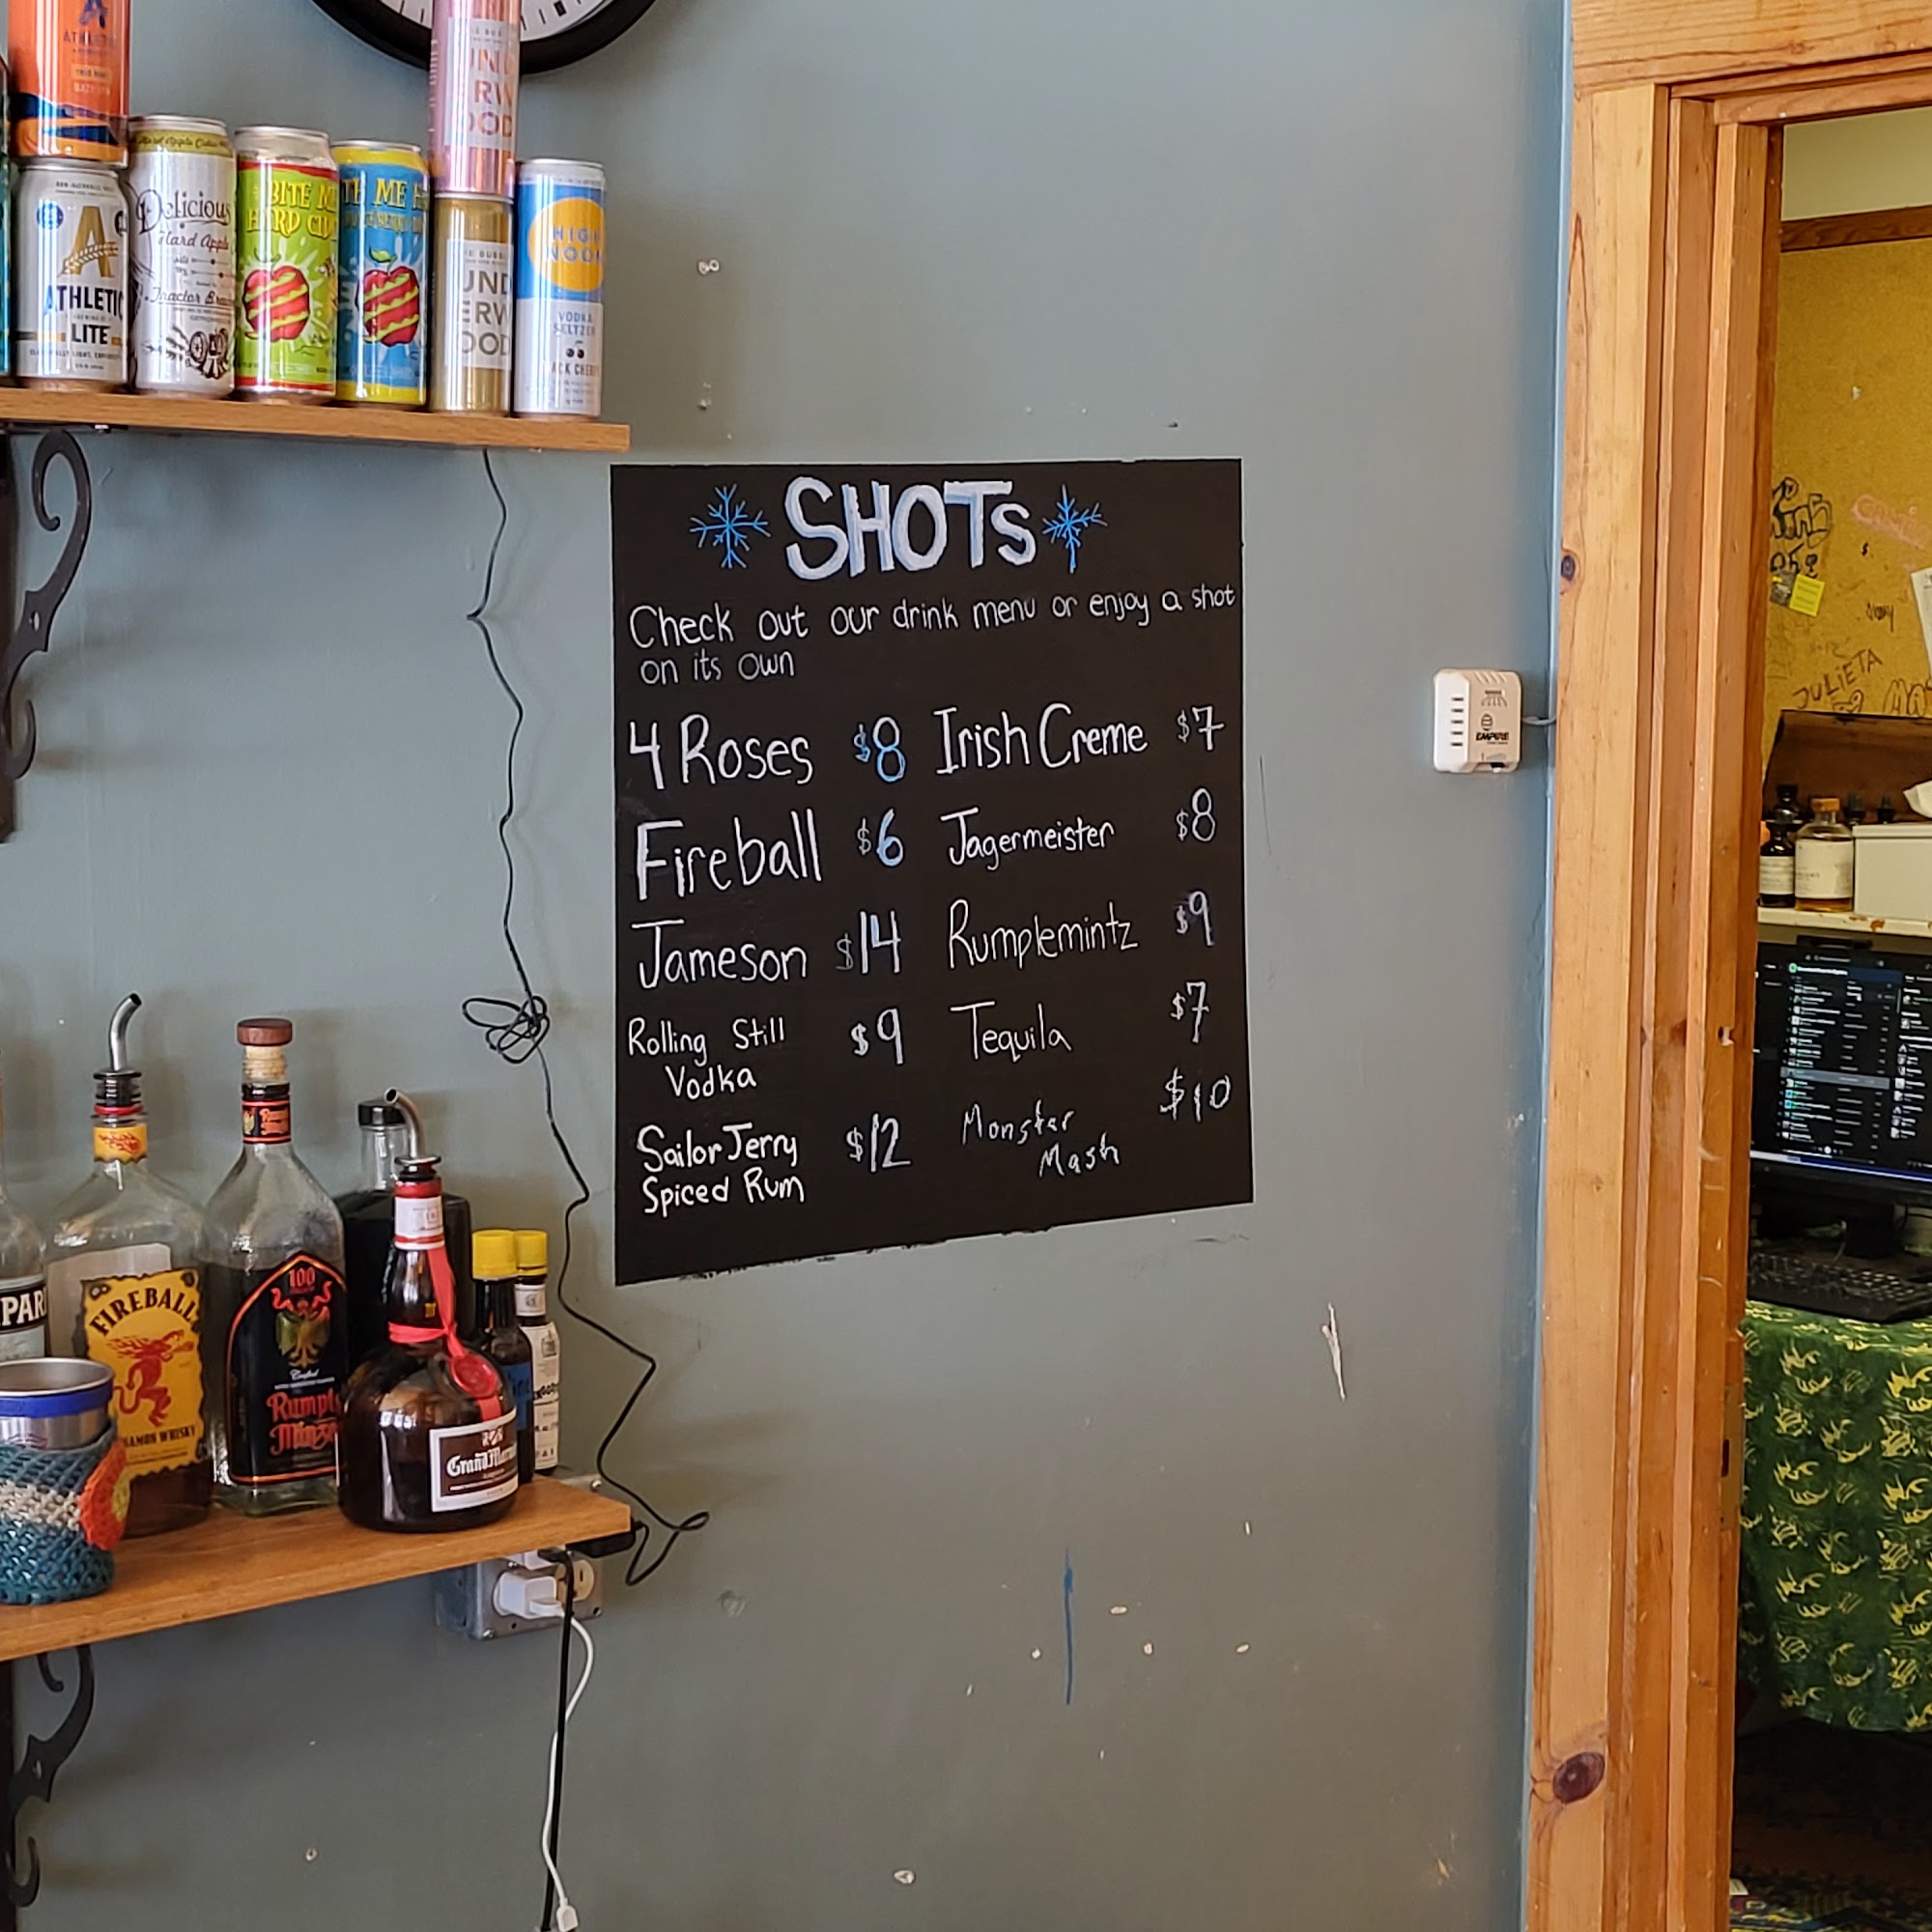 ATHLETIC
LITE
Delicious
Hard Apple
Tractor
BITE ME
HARD
ME
UND
ERW
OOD
HIGH
NOON
VODKA
SELTZER
SHOTs
Check out our drink menu or enjoy a shot
on its own
4 Roses $8 Irish Creme $7
Fireball $6 Jagermeister $8
Jameson $14 Rumplemintz $9
Rolling Still $9 Tequila $7
Vodka
Sailor Jerry $12 Monster $10
Spiced Rum Mash
EMPIRE
JULIETA
FIREBALL
WHISKY
100
Crafted
Rumple
Minze
Grand